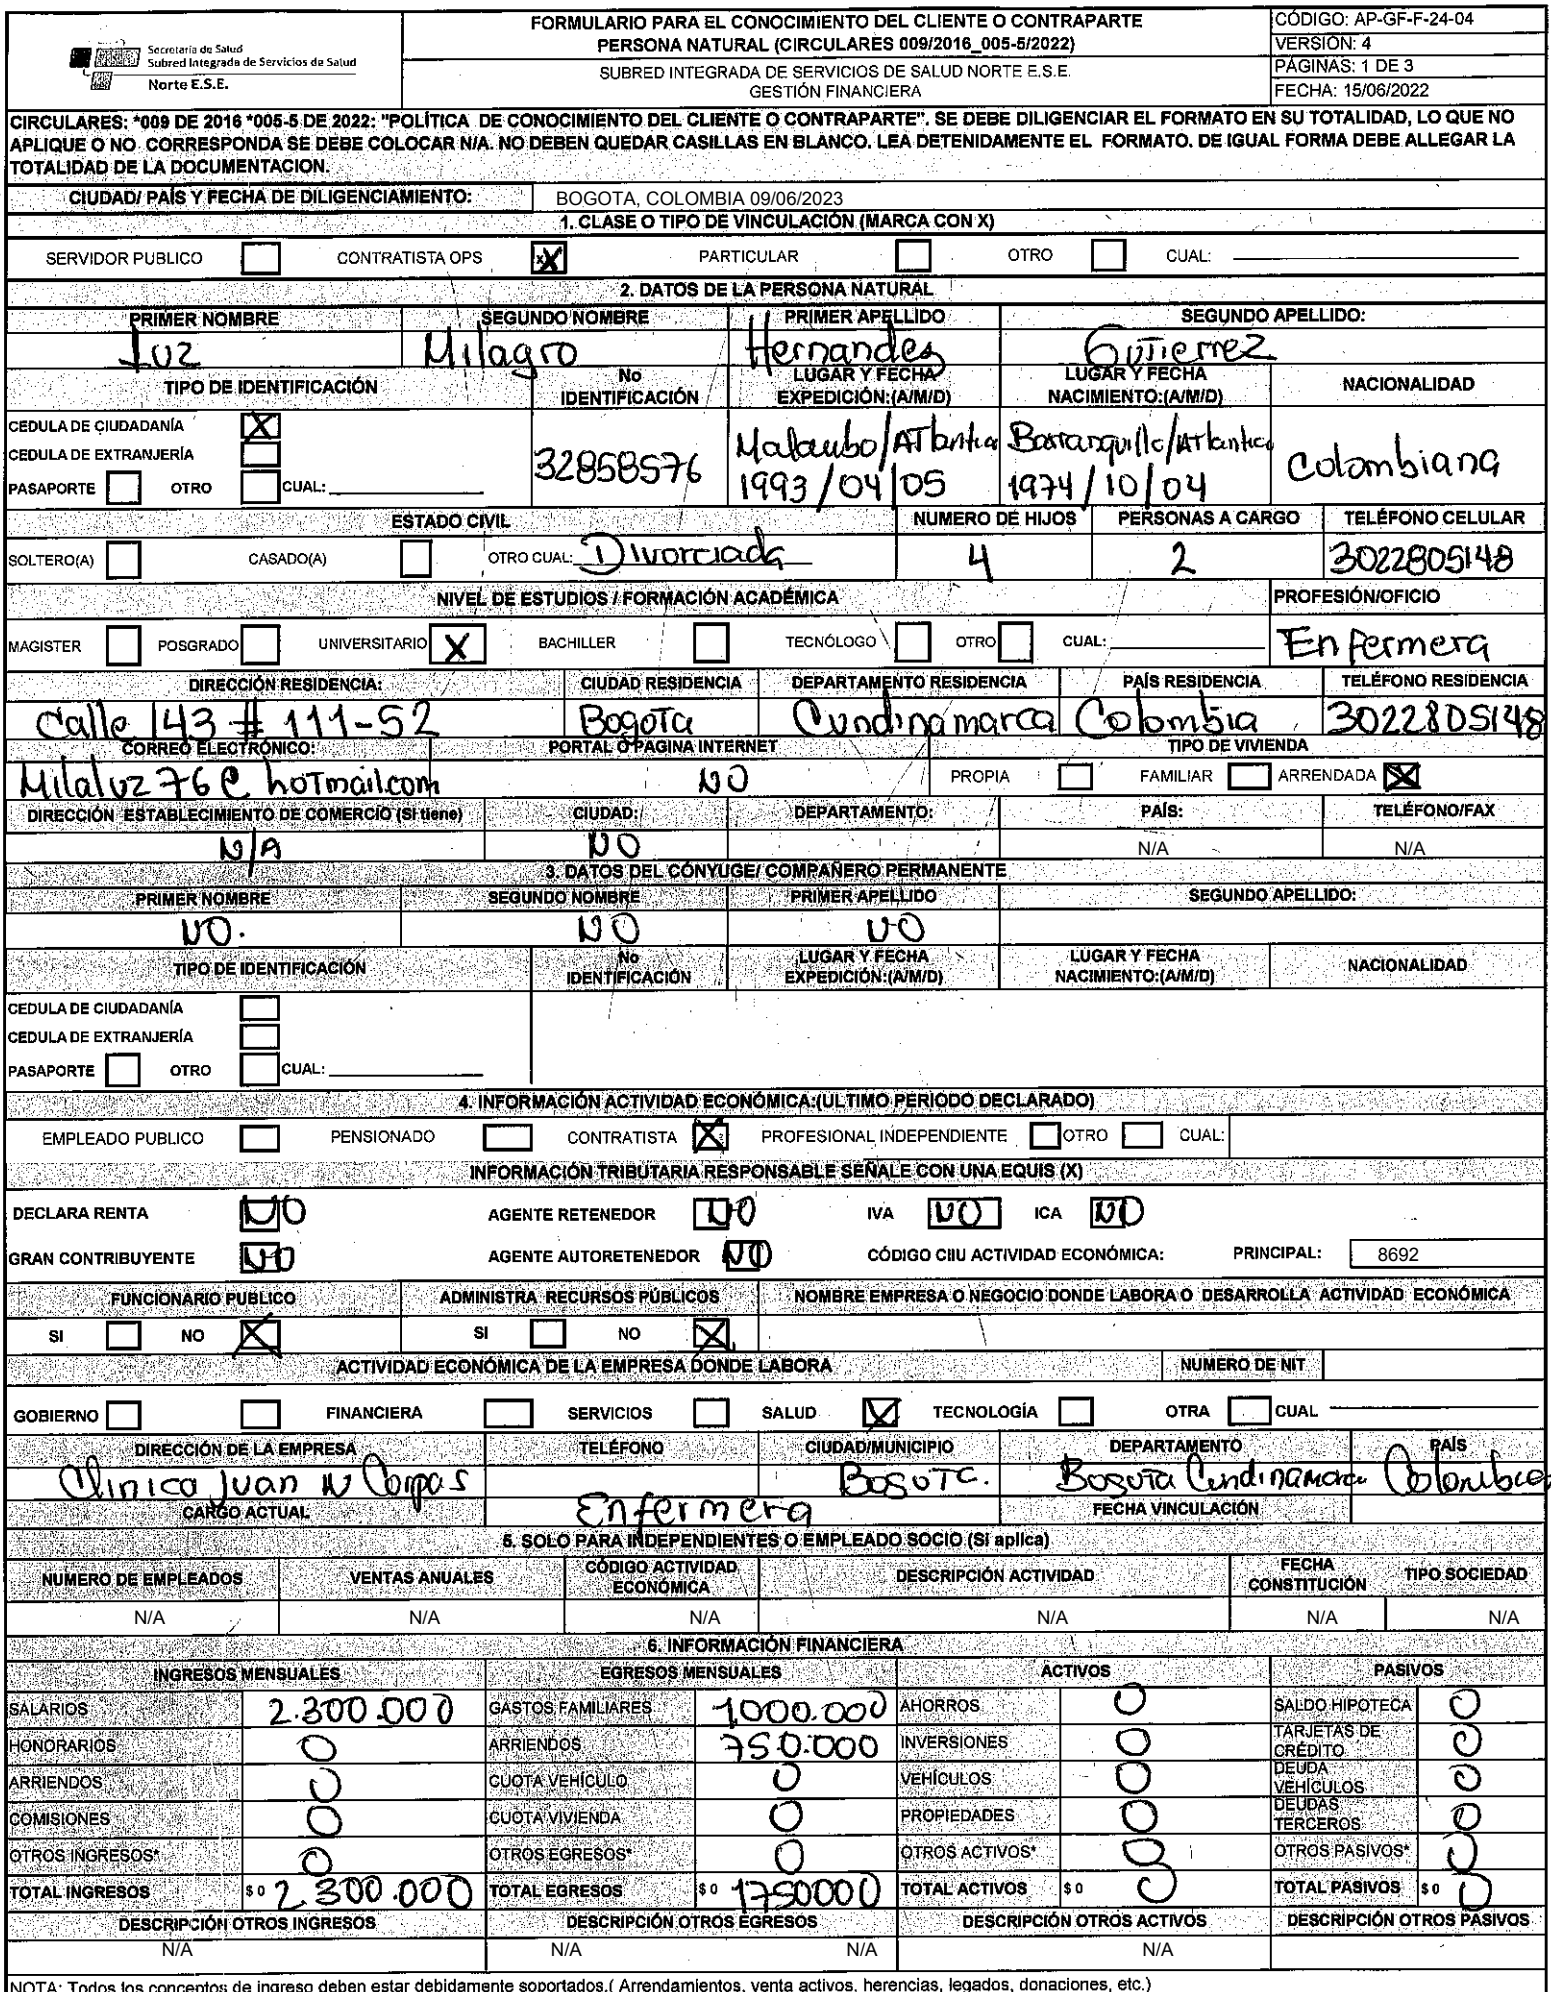 Secretaría de Salud
Subred Integrada de Servicios de Salud
Norte E.S.E.
FORMULARIO PARA EL CONOCIMIENTO DEL CLIENTE O CONTRAPARTE
PERSONA NATURAL (CIRCULARES 009/2016_005-5/2022)
SUBRED INTEGRADA DE SERVICIOS DE SALUD NORTE E.S.E.
GESTIÓN FINANCIERA
CÓDIGO: AP-GF-F-24-04
VERSIÓN: 4
PÁGINAS: 1 DE 3
FECHA: 15/06/2022
CIRCULARES: *009 DE 2016 *005-5 DE 2022: "POLÍTICA DE CONOCIMIENTO DEL CLIENTE O CONTRAPARTE". SE DEBE DILIGENCIAR EL FORMATO EN SU TOTALIDAD, LO QUE NO
APLIQUE O NO CORRESPONDA SE DEBE COLOCAR N/A. NO DEBEN QUEDAR CASILLAS EN BLANCO. LEA DETENIDAMENTE EL FORMATO. DE IGUAL FORMA DEBE ALLEGAR LA
TOTALIDAD DE LA DOCUMENTACION.
CIUDAD/ PAÍS Y FECHA DE DILIGENCIAMIENTO: BOGOTA, COLOMBIA 09/06/2023
1. CLASE O TIPO DE VINCULACIÓN (MARCA CON X)
SERVIDOR PUBLICO CONTRATISTA OPS X PARTICULAR OTRO CUAL:
2. DATOS DE LA PERSONA NATURAL
PRIMER NOMBRE SEGUNDO NOMBRE PRIMER APELLIDO SEGUNDO APELLIDO:
Luz Milagro Hernandes Gutierrez
TIPO DE IDENTIFICACIÓN No IDENTIFICACIÓN LUGAR Y FECHA EXPEDICIÓN:(A/M/D) LUGAR Y FECHA NACIMIENTO:(A/M/D) NACIONALIDAD
CEDULA DE CIUDADANÍA X
CEDULA DE EXTRANJERÍA
PASAPORTE OTRO CUAL:
32858576
Malambo/Atlantico
1993/04/05
Barranquilla/Atlantico
1974/10/04
Colombiana
ESTADO CIVIL NUMERO DE HIJOS PERSONAS A CARGO TELÉFONO CELULAR
SOLTERO(A) CASADO(A) OTRO CUAL: Divorciada 4 2 3022805148
NIVEL DE ESTUDIOS / FORMACIÓN ACADÉMICA PROFESIÓN/OFICIO
MAGISTER POSGRADO UNIVERSITARIO X BACHILLER TECNÓLOGO OTRO CUAL: Enfermera
DIRECCIÓN RESIDENCIA: CIUDAD RESIDENCIA DEPARTAMENTO RESIDENCIA PAÍS RESIDENCIA TELÉFONO RESIDENCIA
Calle 143 # 111-52 Bogota Cundinamarca Colombia 3022805148
CORREO ELECTRÓNICO: PORTAL O PAGINA INTERNET TIPO DE VIVIENDA
Milaluz76@hotmail.com NO PROPIA FAMILIAR ARRENDADA X
DIRECCIÓN ESTABLECIMIENTO DE COMERCIO (Si tiene) CIUDAD: DEPARTAMENTO: PAÍS: TELÉFONO/FAX
N/A NO N/A N/A
3. DATOS DEL CÓNYUGE/ COMPAÑERO PERMANENTE
PRIMER NOMBRE SEGUNDO NOMBRE PRIMER APELLIDO SEGUNDO APELLIDO:
NO. NO NO
TIPO DE IDENTIFICACIÓN No IDENTIFICACIÓN LUGAR Y FECHA EXPEDICIÓN:(A/M/D) LUGAR Y FECHA NACIMIENTO:(A/M/D) NACIONALIDAD
CEDULA DE CIUDADANÍA
CEDULA DE EXTRANJERÍA
PASAPORTE OTRO CUAL:
4. INFORMACIÓN ACTIVIDAD ECONÓMICA:(ULTIMO PERIODO DECLARADO)
EMPLEADO PUBLICO PENSIONADO CONTRATISTA X PROFESIONAL INDEPENDIENTE OTRO CUAL:
INFORMACIÓN TRIBUTARIA RESPONSABLE SEÑALE CON UNA EQUIS (X)
DECLARA RENTA NO AGENTE RETENEDOR NO IVA NO ICA NO
GRAN CONTRIBUYENTE NO AGENTE AUTORETENEDOR NO CÓDIGO CIIU ACTIVIDAD ECONÓMICA: PRINCIPAL: 8692
FUNCIONARIO PUBLICO ADMINISTRA RECURSOS PÚBLICOS NOMBRE EMPRESA O NEGOCIO DONDE LABORA O DESARROLLA ACTIVIDAD ECONÓMICA
SI NO X SI NO X
ACTIVIDAD ECONÓMICA DE LA EMPRESA DONDE LABORA NUMERO DE NIT
GOBIERNO FINANCIERA SERVICIOS SALUD X TECNOLOGÍA OTRA CUAL
DIRECCIÓN DE LA EMPRESA TELÉFONO CIUDAD/MUNICIPIO DEPARTAMENTO PAÍS
Clinica Juan N Corpas Bogota. Bogota Cundinamarca Colombia
CARGO ACTUAL Enfermera FECHA VINCULACIÓN
5. SOLO PARA INDEPENDIENTES O EMPLEADO SOCIO (Si aplica)
NUMERO DE EMPLEADOS VENTAS ANUALES CÓDIGO ACTIVIDAD ECONÓMICA DESCRIPCIÓN ACTIVIDAD FECHA CONSTITUCIÓN TIPO SOCIEDAD
N/A N/A N/A N/A N/A N/A
6. INFORMACIÓN FINANCIERA
INGRESOS MENSUALES EGRESOS MENSUALES ACTIVOS PASIVOS
SALARIOS 2.300.000 GASTOS FAMILIARES 1000.000 AHORROS 0 SALDO HIPOTECA 0
HONORARIOS 0 ARRIENDOS 750.000 INVERSIONES 0 TARJETAS DE CRÉDITO 0
ARRIENDOS 0 CUOTA VEHÍCULO 0 VEHÍCULOS 0 DEUDA VEHÍCULOS 0
COMISIONES 0 CUOTA VIVIENDA 0 PROPIEDADES 0 DEUDAS TERCEROS 0
OTROS INGRESOS* 0 OTROS EGRESOS* 0 OTROS ACTIVOS* 0 OTROS PASIVOS* 0
TOTAL INGRESOS $ 0 2.300.000 TOTAL EGRESOS $ 0 1750000 TOTAL ACTIVOS $ 0 0 TOTAL PASIVOS $ 0 0
DESCRIPCIÓN OTROS INGRESOS DESCRIPCIÓN OTROS EGRESOS DESCRIPCIÓN OTROS ACTIVOS DESCRIPCIÓN OTROS PASIVOS
N/A N/A N/A N/A
NOTA: Todos los conceptos de ingreso deben estar debidamente soportados.( Arrendamientos, venta activos, herencias, legados, donaciones, etc.)